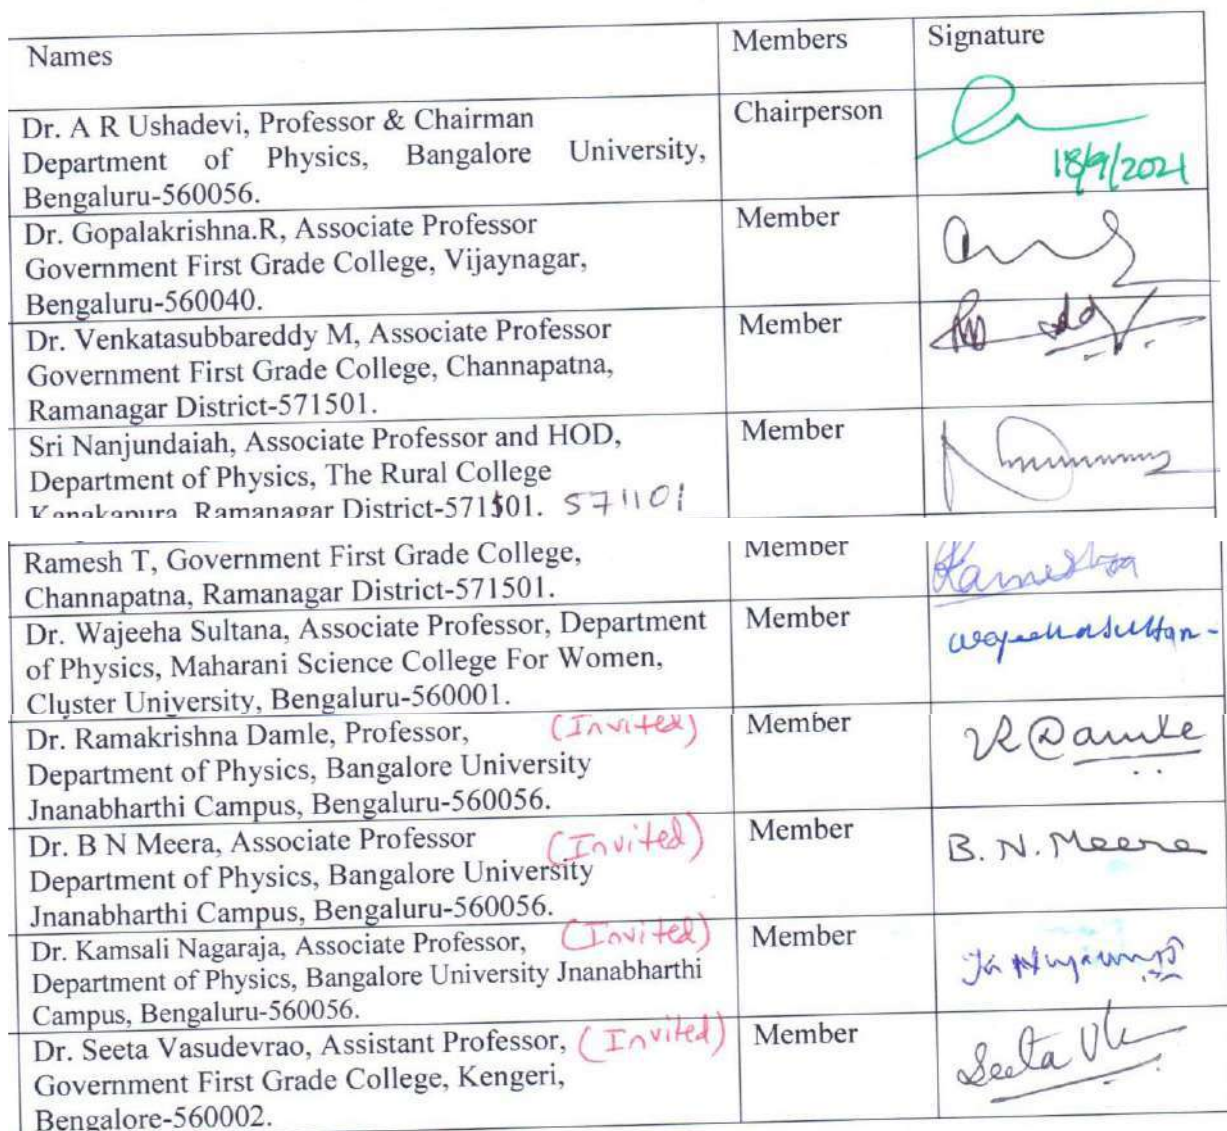 Names Members Signature
Dr. A R Ushadevi, Professor & Chairman Chairperson
Department of Physics, Bangalore University,
Bengaluru-560056. 18/9/2021
Dr. Gopalakrishna.R, Associate Professor Member
Government First Grade College, Vijaynagar,
Bengaluru-560040.
Dr. Venkatasubbareddy M, Associate Professor Member
Government First Grade College, Channapatna,
Ramanagar District-571501.
Sri Nanjundaiah, Associate Professor and HOD, Member
Department of Physics, The Rural College
Kanakapura, Ramanagar District-571501. 571101
Ramesh T, Government First Grade College, Member
Channapatna, Ramanagar District-571501.
Dr. Wajeeha Sultana, Associate Professor, Department Member
of Physics, Maharani Science College For Women, wajeehasultan-
Cluster University, Bengaluru-560001.
Dr. Ramakrishna Damle, Professor, (Invited) Member
Department of Physics, Bangalore University
Jnanabharthi Campus, Bengaluru-560056.
Dr. B N Meera, Associate Professor (Invited) Member B. N. Meera
Department of Physics, Bangalore University
Jnanabharthi Campus, Bengaluru-560056.
Dr. Kamsali Nagaraja, Associate Professor, (Invited) Member
Department of Physics, Bangalore University Jnanabharthi
Campus, Bengaluru-560056.
Dr. Seeta Vasudevrao, Assistant Professor, (Invited) Member
Government First Grade College, Kengeri, Seeta
Bengalore-560002.